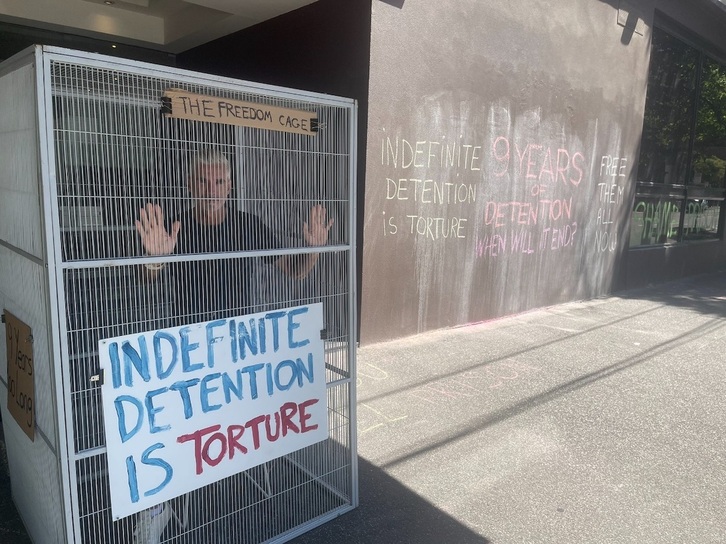 THE FREEDOM CAGE
INDEFINITE
DETENTION
IS TORTURE
Years
Long
INDEFINITE
DETENTION
IS TORTURE
9 YEARS
OF
DETENTION
WHEN WILL IT END?
FREE
THEM
ALL
NOW